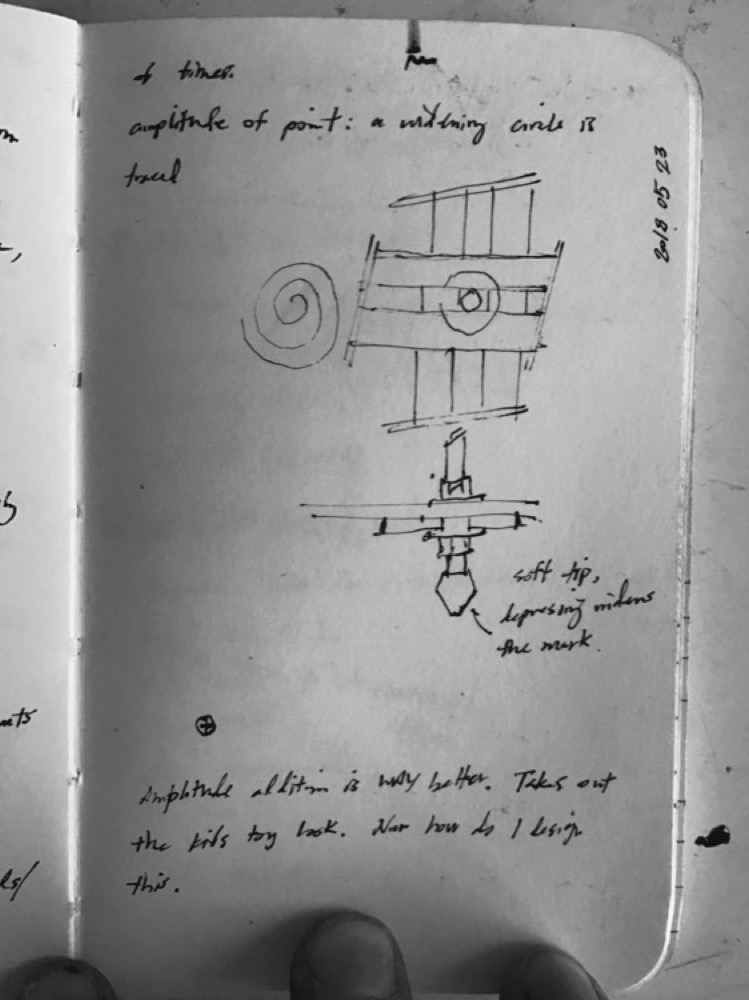 of times.
amplitude of point: a widening circle is
traced
2018 05 23
soft tip,
depressing widens
the mark.
Amplitude addition is way better. Takes out
the kids toy look. Now how do I design
this.